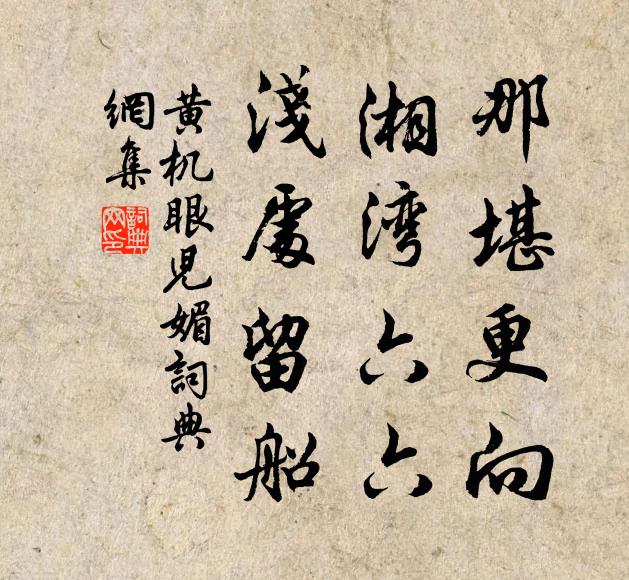 那堪更向
湘湾六六
淺處留船
黄机眼児媚詞典
網集
詞典
网印